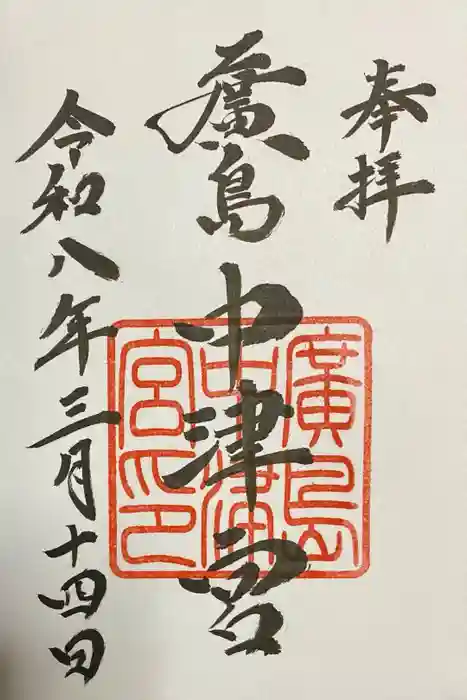 奉拝
廣島中津宮
廣島中津宮印
令和八年三月十四日